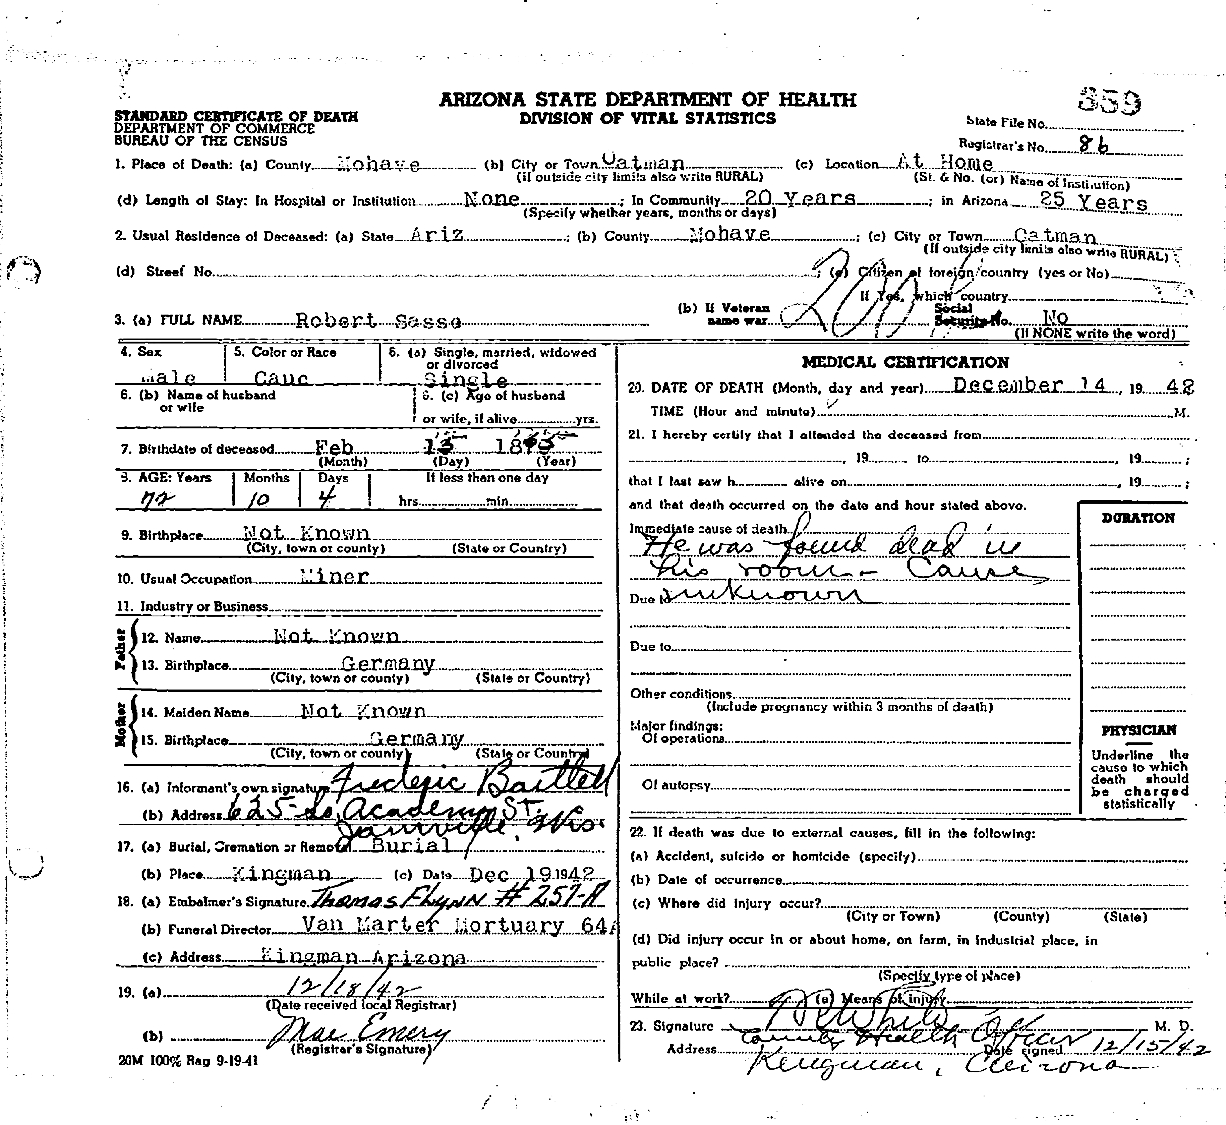 ARIZONA STATE DEPARTMENT OF HEALTH
DIVISION OF VITAL STATISTICS
STANDARD CERTIFICATE OF DEATH
DEPARTMENT OF COMMERCE
BUREAU OF THE CENSUS
359
State File No.
Registrar's No. 86
1. Place of Death: (a) County Mohave (b) City or Town Oatman (c) Location At Home
(if outside city limits also write RURAL) (St. & No. (or) Name of Institution)
(d) Length of Stay: In Hospital or Institution None ; In Community 20 Years ; in Arizona 25 Years
(Specify whether years, months or days)
2. Usual Residence of Deceased: (a) State Ariz ; (b) County Mohave ; (c) City or Town Oatman
(If outside city limits also write RURAL)
(d) Street No. ; (e) Citizen of foreign country (yes or No)
If Yes, which country
3. (a) FULL NAME Robert Sasse (b) If Veteran name war Social Security No. No
(If NONE write the word)
4. Sex Male 5. Color or Race Cauc 6. (a) Single, married, widowed or divorced Single
6. (b) Name of husband or wife 6. (c) Age of husband or wife, if alive yrs.
7. Birthdate of deceased Feb 15
(Month) (Day) (Year)
8. AGE: Years Months Days If less than one day
72 10 4 hrs. min.
9. Birthplace Not Known
(City, town or county) (State or Country)
10. Usual Occupation Miner
11. Industry or Business
Father
12. Name Not Known
13. Birthplace Germany
(City, town or county) (State or Country)
Mother
14. Maiden Name Not Known
15. Birthplace Germany
(City, town or county) (State or Country)
16. (a) Informant's own signature Frederic Bartlett
(b) Address 625 So. Academy St.
Wis
17. (a) Burial, Cremation or Removal Burial
(b) Place Kingman (c) Date Dec 19 1942
18. (a) Embalmer's Signature Thomas Flynn # 257-A
(b) Funeral Director Van Marter Mortuary 64A
(c) Address Kingman Arizona
19. (a) 12/18/42
(Date received local Registrar)
(b) Mae Emery
(Registrar's Signature)
20M 100% Rag 9-19-41
MEDICAL CERTIFICATION
20. DATE OF DEATH (Month, day and year) December 14, 19 42
TIME (Hour and minute) M.
21. I hereby certify that I attended the deceased from
, 19 to , 19 ;
that I last saw h alive on , 19 ;
and that death occurred on the date and hour stated above.
Immediate cause of death
He was found dead in
his room - Cause
Due to unknown
Due to
Other conditions
(Include pregnancy within 3 months of death)
Major findings:
Of operations
Of autopsy
DURATION
PHYSICIAN
Underline the
cause to which
death should
be charged
statistically
22. If death was due to external causes, fill in the following:
(a) Accident, suicide or homicide (specify)
(b) Date of occurrence
(c) Where did injury occur?
(City or Town) (County) (State)
(d) Did injury occur in or about home, on farm, in industrial place, in
public place?
(Specify type of place)
While at work? (e) Means of injury
23. Signature White M. D.
County Health Officer
Address Date signed 12/15/42
Kingman, Arizona